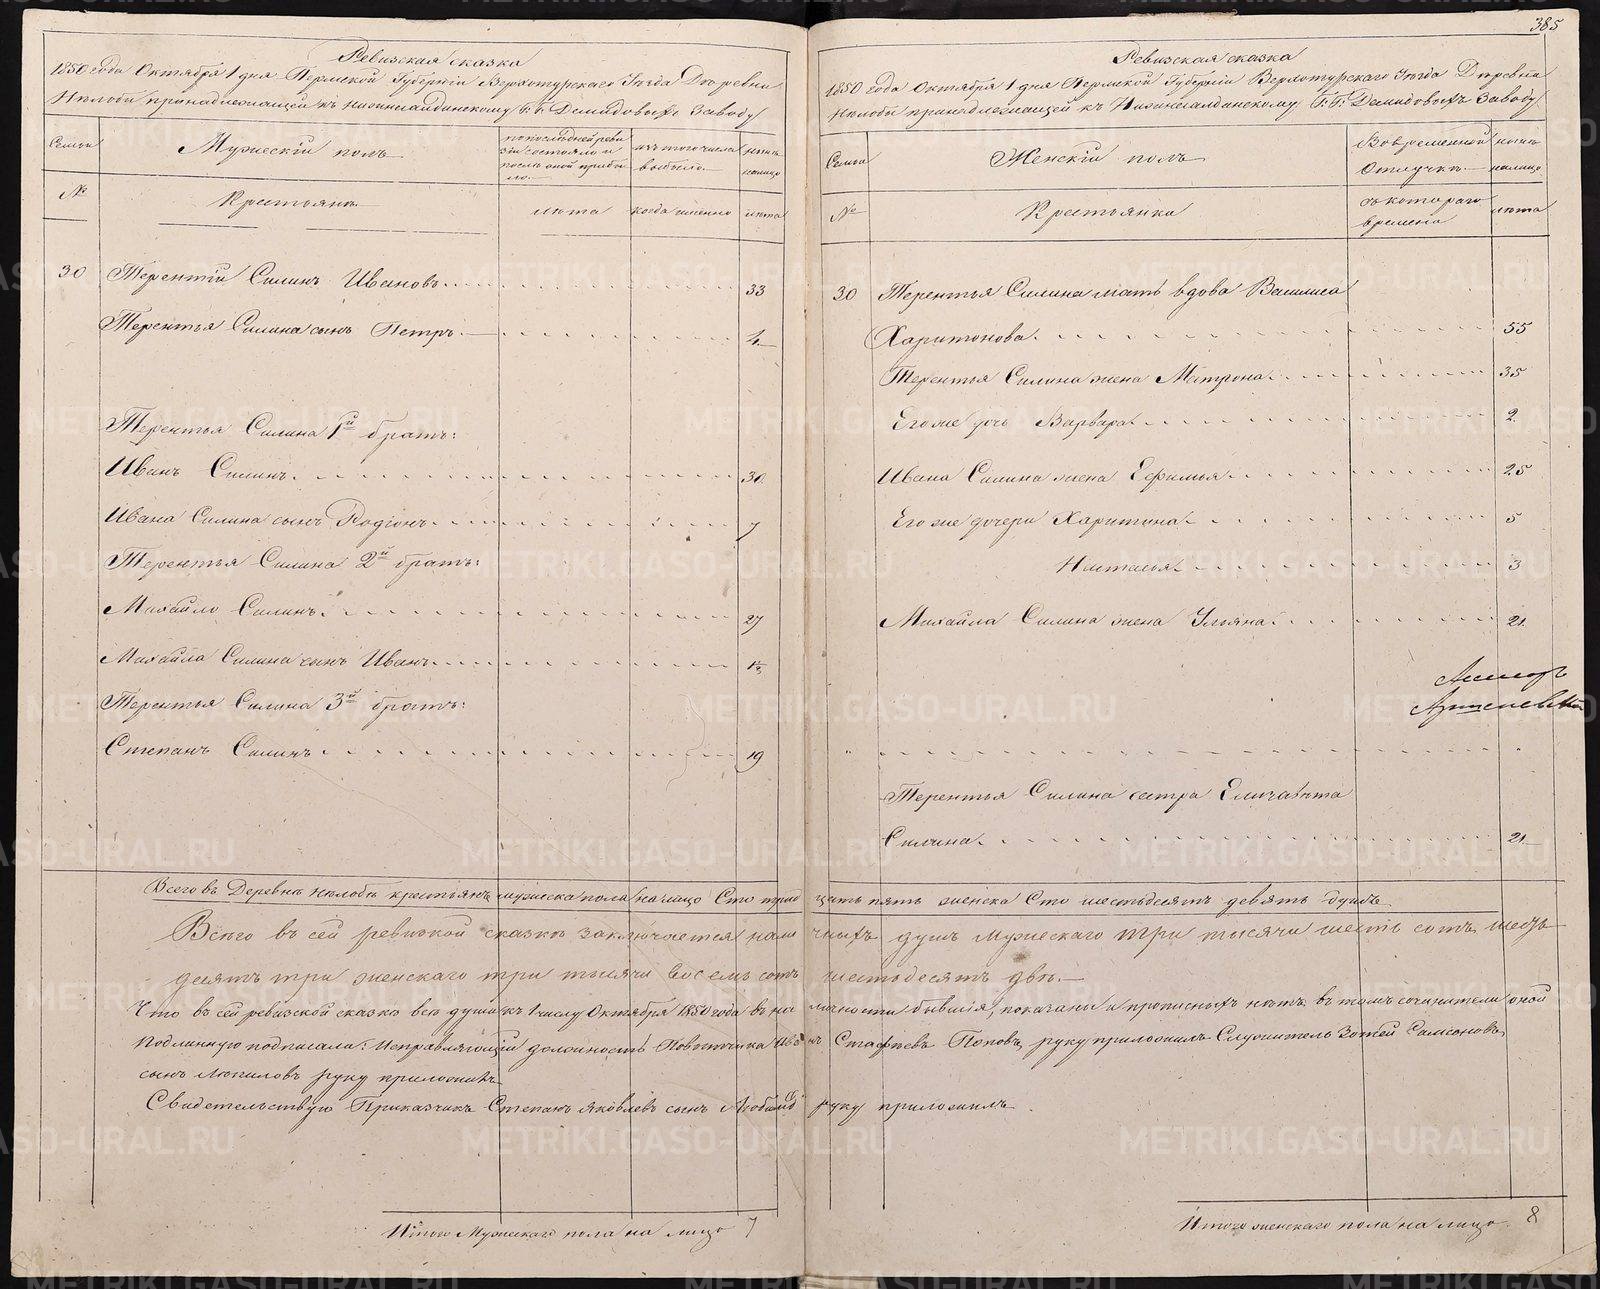 385
Ревизская сказка
1850 года Октября 1 дня Пермской Губерніи Верхотурскаго Уѣзда Деревни
Нѣлобы принадлежащей къ Нижнесалдинскому Г.г. Демидовыхъ Заводу
Семьи
Мужескій полъ
по послѣдней реви
зіи состояло и
послѣ оной прибы
ло.
изъ того числа
выбыло.
нынѣ
налицо
№
Крестьянъ
лѣта
когда именно
лѣта
30 Терентій Силинъ Ивановъ 33
Терентья Силина сынъ Петръ 4
Терентья Силина 1й братъ:
Иванъ Силинъ 30
Ивана Силина сынъ Родіонъ 7
Терентья Силина 2й братъ:
Михайло Силинъ 27
Михайла Силина сынъ Иванъ ½
Терентья Силина 3й братъ:
Степанъ Силинъ 19
Ревизская сказка
1850 года Октября 1 дня Пермской Губерніи Верхотурскаго Уѣзда Деревни
Нѣлобы принадлежащей къ Нижнесалдинскому Г.г. Демидовыхъ Заводу
Семьи
Женскій полъ
Во временной
отлучкѣ
нынѣ
налицо
№
Крестьянка
съ котораго
времени
лѣта
30 Терентья Силина мать вдова Василиса
Харитонова 55
Терентья Силина жена Матрона 35
Его же дочь Варвара 2
Ивана Силина жена Ефимья 25
Его же дочери Харитина 5
Настасья 3
Михайла Силина жена Ульяна 21
Терентья Силина сестра Елисавѣта
Силина 21
Всего въ Деревнѣ Нѣлобѣ крестьянъ мужеска пола на лицо Сто трид цать пять женска Сто шестьдесятъ девять душъ
Всего въ сей ревизкой сказкѣ заключается нали чныхъ душъ мужескаго три тысячи шесть сотъ шесть
десятъ три женскаго три тысячи восемь сотъ шестьдесятъ двѣ.
Что въ сей ревизской сказкѣ всѣ души къ 1 числу Октября 1850 года въ на личности бывшія, показаны и прописныхъ нѣтъ въ томъ сочинители оной
подлинную подписали: Исправляющій должность Повытчика Ива нъ Стафѣевъ Поповъ руку приложилъ Служитель Зотей Самсоновъ
сынъ руку приложилъ
Свидетельствую Прикащикъ Степанъ Яковлевъ сынъ руку приложилъ
Итого Мужескаго пола на лицо 7
Итого женскаго пола на лицо 8
METRIKI.GASO-URAL.RU